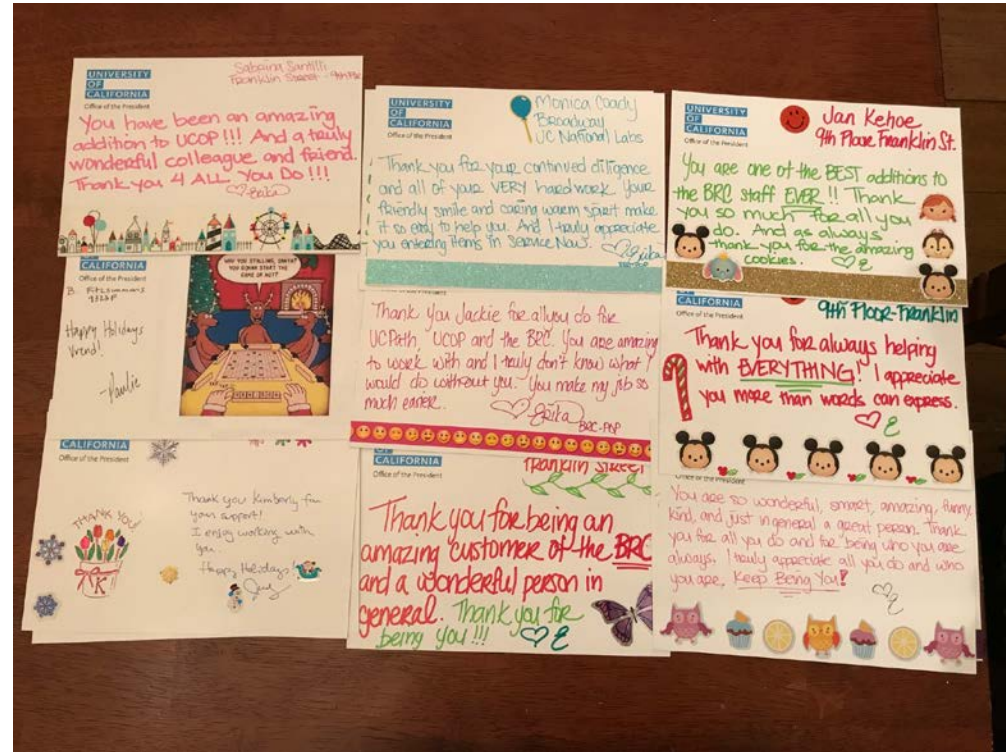 UNIVERSITY
OF
CALIFORNIA
Office of the President
Sabrina Santilli
Franklin Street - 9th Flr
You have been an amazing
addition to UCOP!!! And a truly
wonderful colleague and friend.
Thank you 4 ALL You Do !!!
Erika
CALIFORNIA
Office of the President
B. Fitzsimmons
Happy Holidays
Friend!
-Paulie
WHY YOU STALLING, SANTA?
YOU GONNA START THE
GAME OR NOT?
CALIFORNIA
Office of the President
THANK YOU!
K
Thank you Kimberly for
your support!
I enjoy working with
you.
Happy Holidays!
UNIVERSITY
OF
CALIFORNIA
Office of the President
Monica Coady
Broadway
UC National Labs
Thank you for your continued diligence
and all of your VERY hard work. Your
friendly smile and caring warm spirit make
it so easy to help you. And I truly appreciate
you entering items in Service Now.
Erika
Thank you Jackie for all you do for
UCPath, UCOP and the BRC. You are amazing
to work with and I truly don't know what I
would do without you. You make my job so
much easier.
Erika
BRC-POP
OF
CALIFORNIA
Office of the President
Franklin Street
Thank you for being an
amazing customer of the BRC
and a wonderful person in
general. Thank you for
being you !!! E
UNIVERSITY
OF
CALIFORNIA
Office of the President
Jan Kehoe
9th Floor Franklin St.
You are one of the BEST additions to
the BRC staff EVER !! Thank
you so much for all you
do. And as always
thank you for the amazing
cookies. E
CALIFORNIA
Office of the President
9th Floor-Franklin
Thank you for always helping
with EVERYTHING! I appreciate
you more than words can express.
E
Office of the President
You are so wonderful, smart, amazing, funny,
kind, and just in general a great person. Thank
you for all you do and for being who you are
always. I truly appreciate all you do and who
you are, Keep Being You!
E